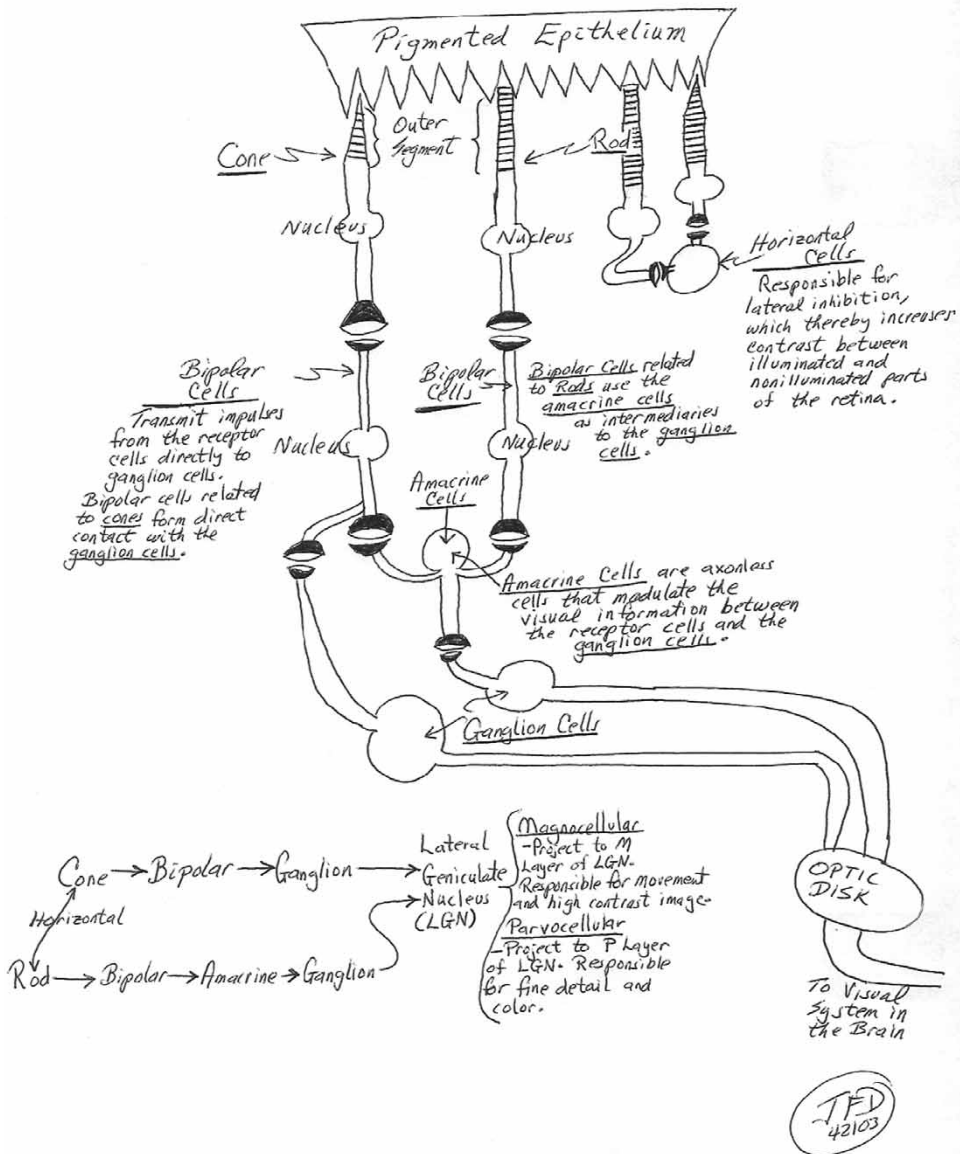 Pigmented Epithelium
Outer
Segment
Cone
Rod
Nucleus
Nucleus
Horizontal
Cells
Responsible for
lateral inhibition,
which thereby increases
contrast between
illuminated and
nonilluminated parts
of the retina.
Bipolar
Cells
Transmit impulses
from the receptor
cells directly to
ganglion cells.
Bipolar cells related
to cones form direct
contact with the
ganglion cells.
Nucleus
Bipolar
Cells
Bipolar Cells related
to Rods use the
amacrine cells
as intermediaries
to the ganglion
cells.
Nucleus
Amacrine
Cells
Amacrine Cells are axonless
cells that modulate the
visual information between
the receptor cells and the
ganglion cells.
Ganglion Cells
Cone → Bipolar → Ganglion →
Horizontal
Rod → Bipolar → Amacrine → Ganglion
Lateral
Geniculate
Nucleus
(LGN)
Magnocellular
-Project to M
Layer of LGN-
Responsible for movement
and high contrast image-
Parvocellular
-Project to P Layer
of LGN. Responsible
for fine detail and
color.
OPTIC
DISK
To Visual
System in
the Brain
JFD
42103